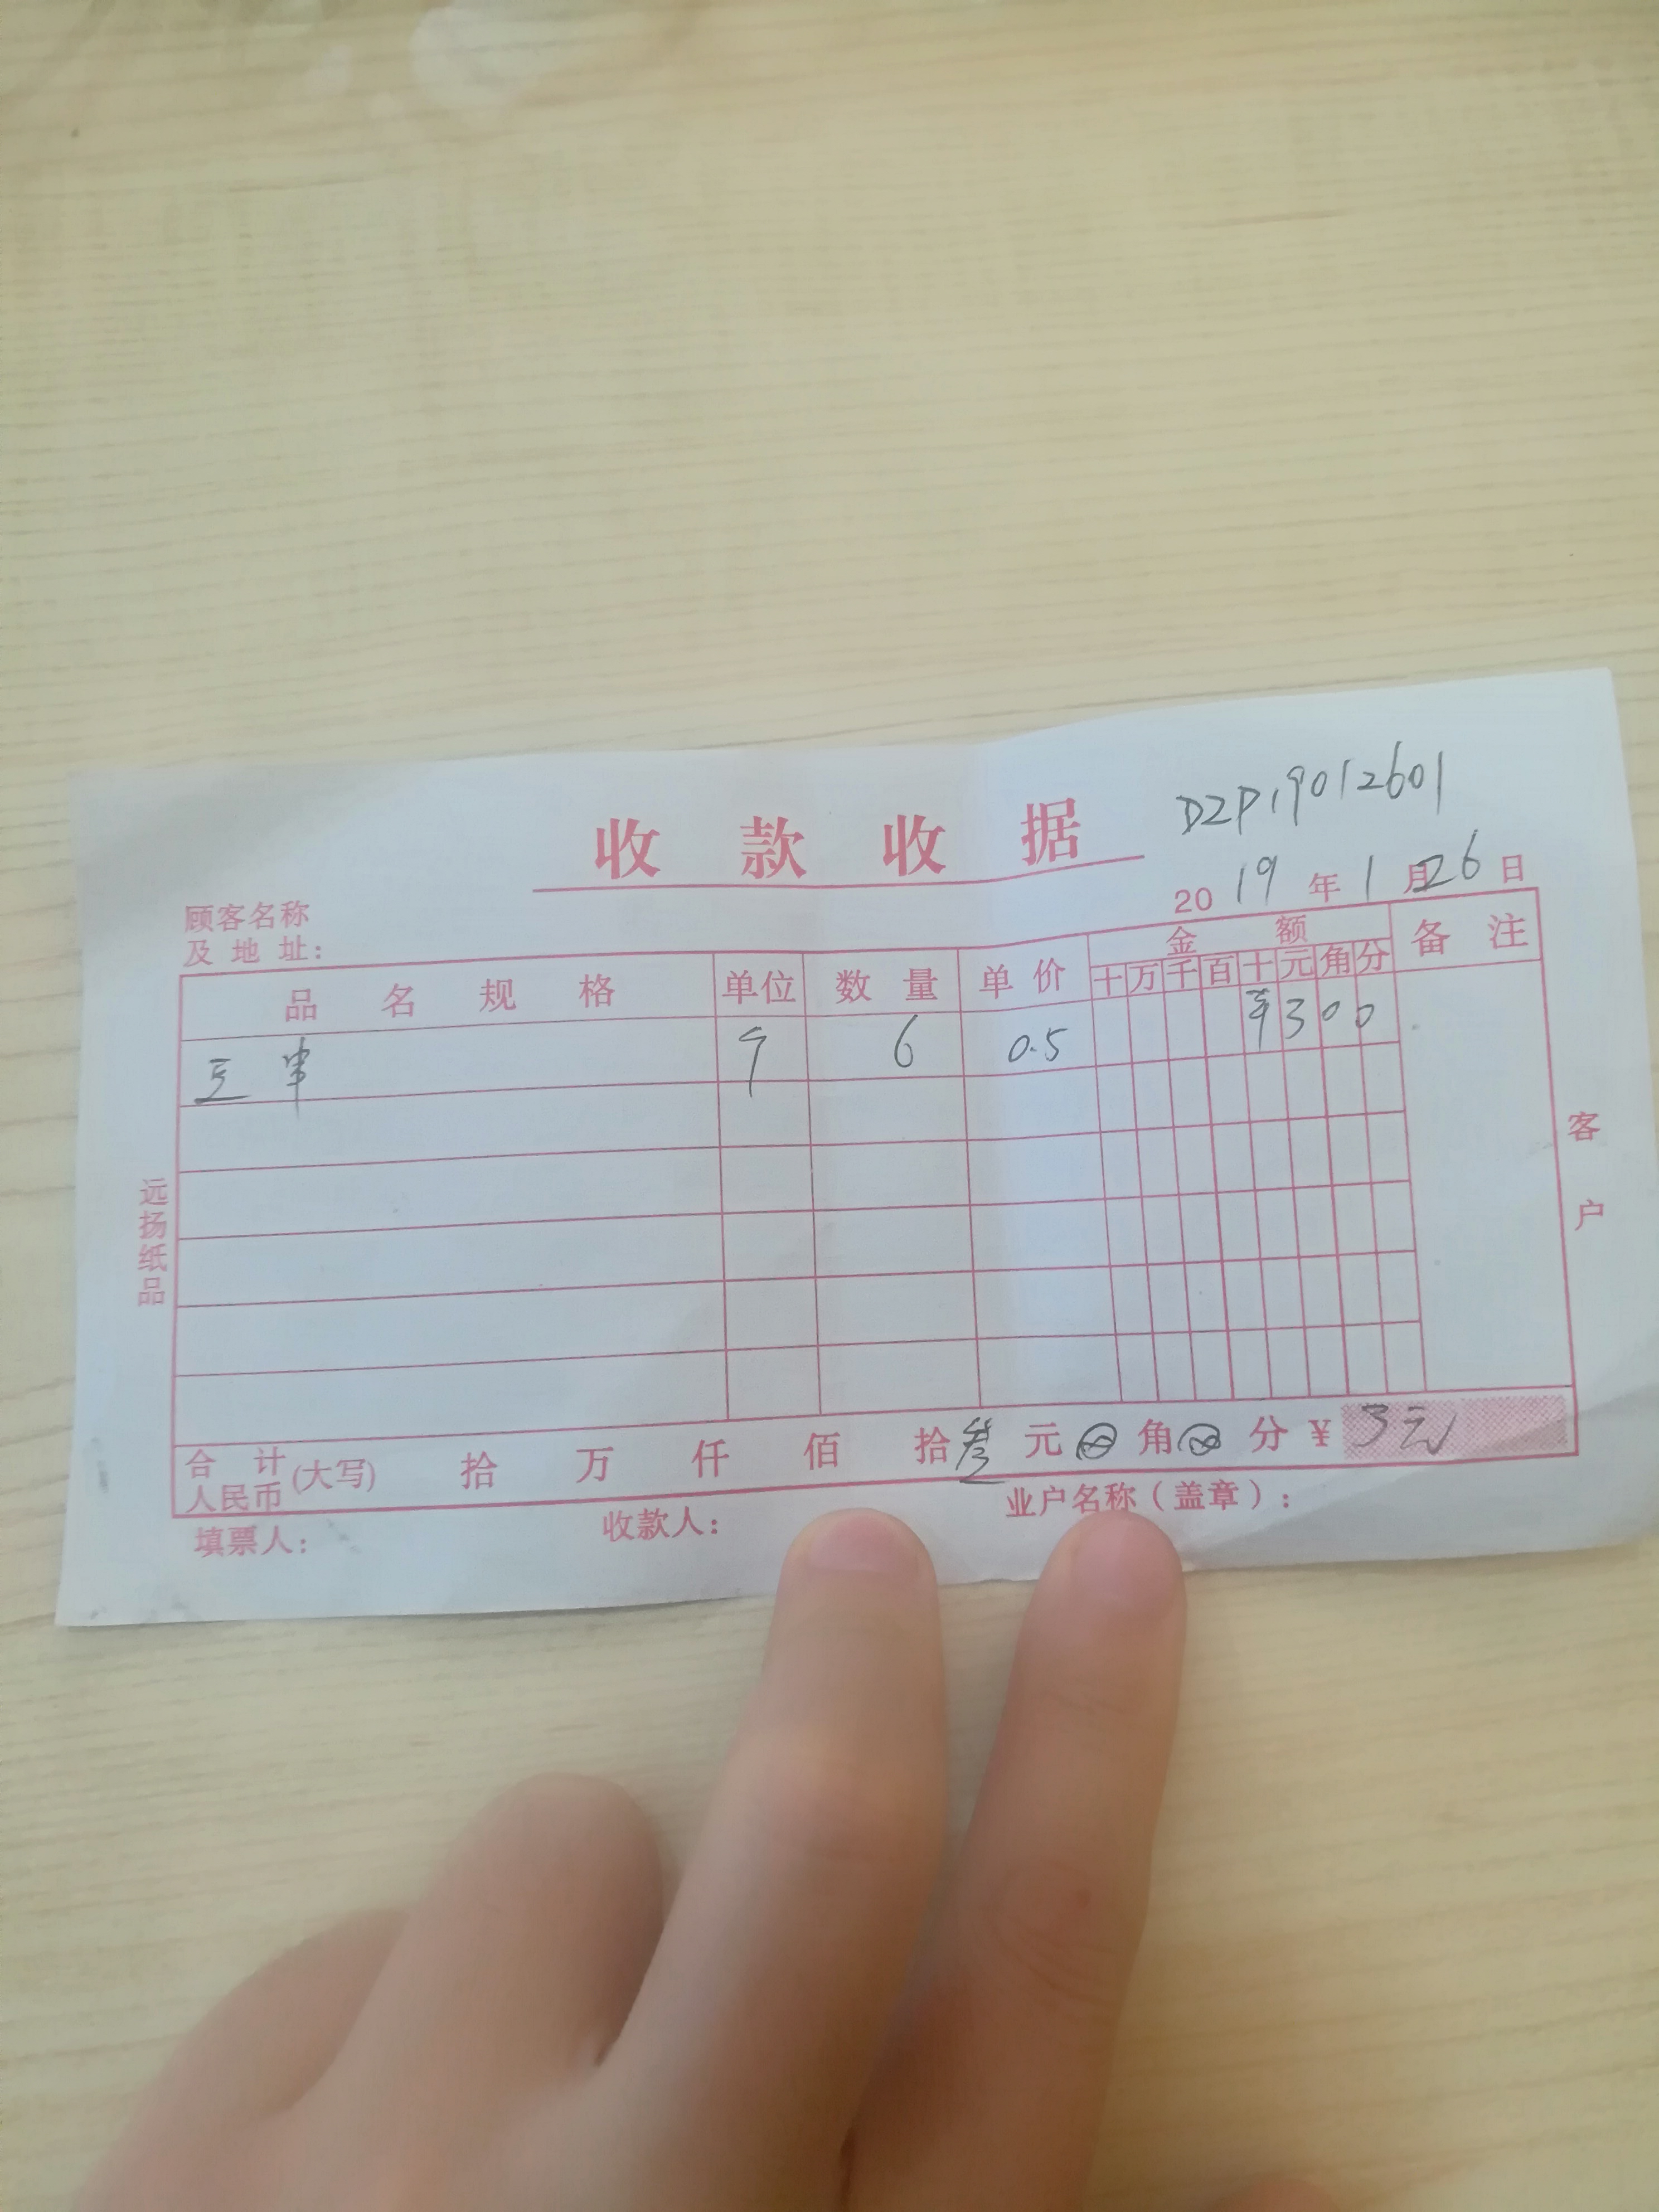 收款收据
DZP19012601
2019年1月26日
顾客名称
及地址：
品名规格 单位 数量 单价 金额 备注
十万千百十元角分
豆串 个 6 0.5 ¥300
客户
远扬纸品
合计
人民币
(大写) 拾 万 仟 佰 拾叁元⊗角⊗分 ¥3元
填票人： 收款人： 业户名称（盖章）：